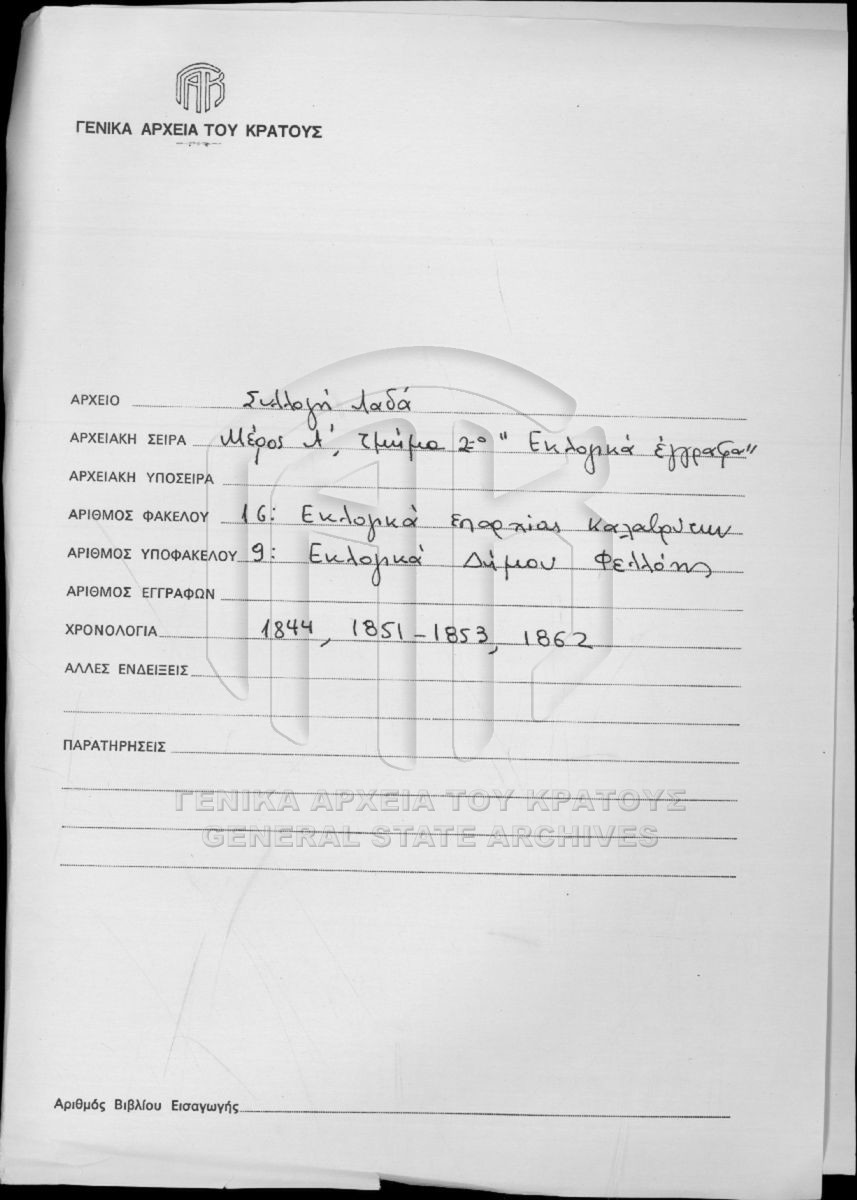 ΓΑΚ
ΓΕΝΙΚΑ ΑΡΧΕΙΑ ΤΟΥ ΚΡΑΤΟΥΣ
ΑΡΧΕΙΟ Συλλογή Λαδά
ΑΡΧΕΙΑΚΗ ΣΕΙΡΑ Μέρος Α', Τμήμα 2ο "Εκλογικά έγγραφα"
ΑΡΧΕΙΑΚΗ ΥΠΟΣΕΙΡΑ
ΑΡΙΘΜΟΣ ΦΑΚΕΛΟΥ 16: Εκλογικά επαρχίας Καλαβρύτων
ΑΡΙΘΜΟΣ ΥΠΟΦΑΚΕΛΟΥ 9: Εκλογικά Δήμου Φελλόης
ΑΡΙΘΜΟΣ ΕΓΓΡΑΦΩΝ
ΧΡΟΝΟΛΟΓΙΑ 1844, 1851-1853, 1862
ΑΛΛΕΣ ΕΝΔΕΙΞΕΙΣ
ΠΑΡΑΤΗΡΗΣΕΙΣ
ΓΕΝΙΚΑ ΑΡΧΕΙΑ ΤΟΥ ΚΡΑΤΟΥΣ
GENERAL STATE ARCHIVES
Αριθμός Βιβλίου Εισαγωγής